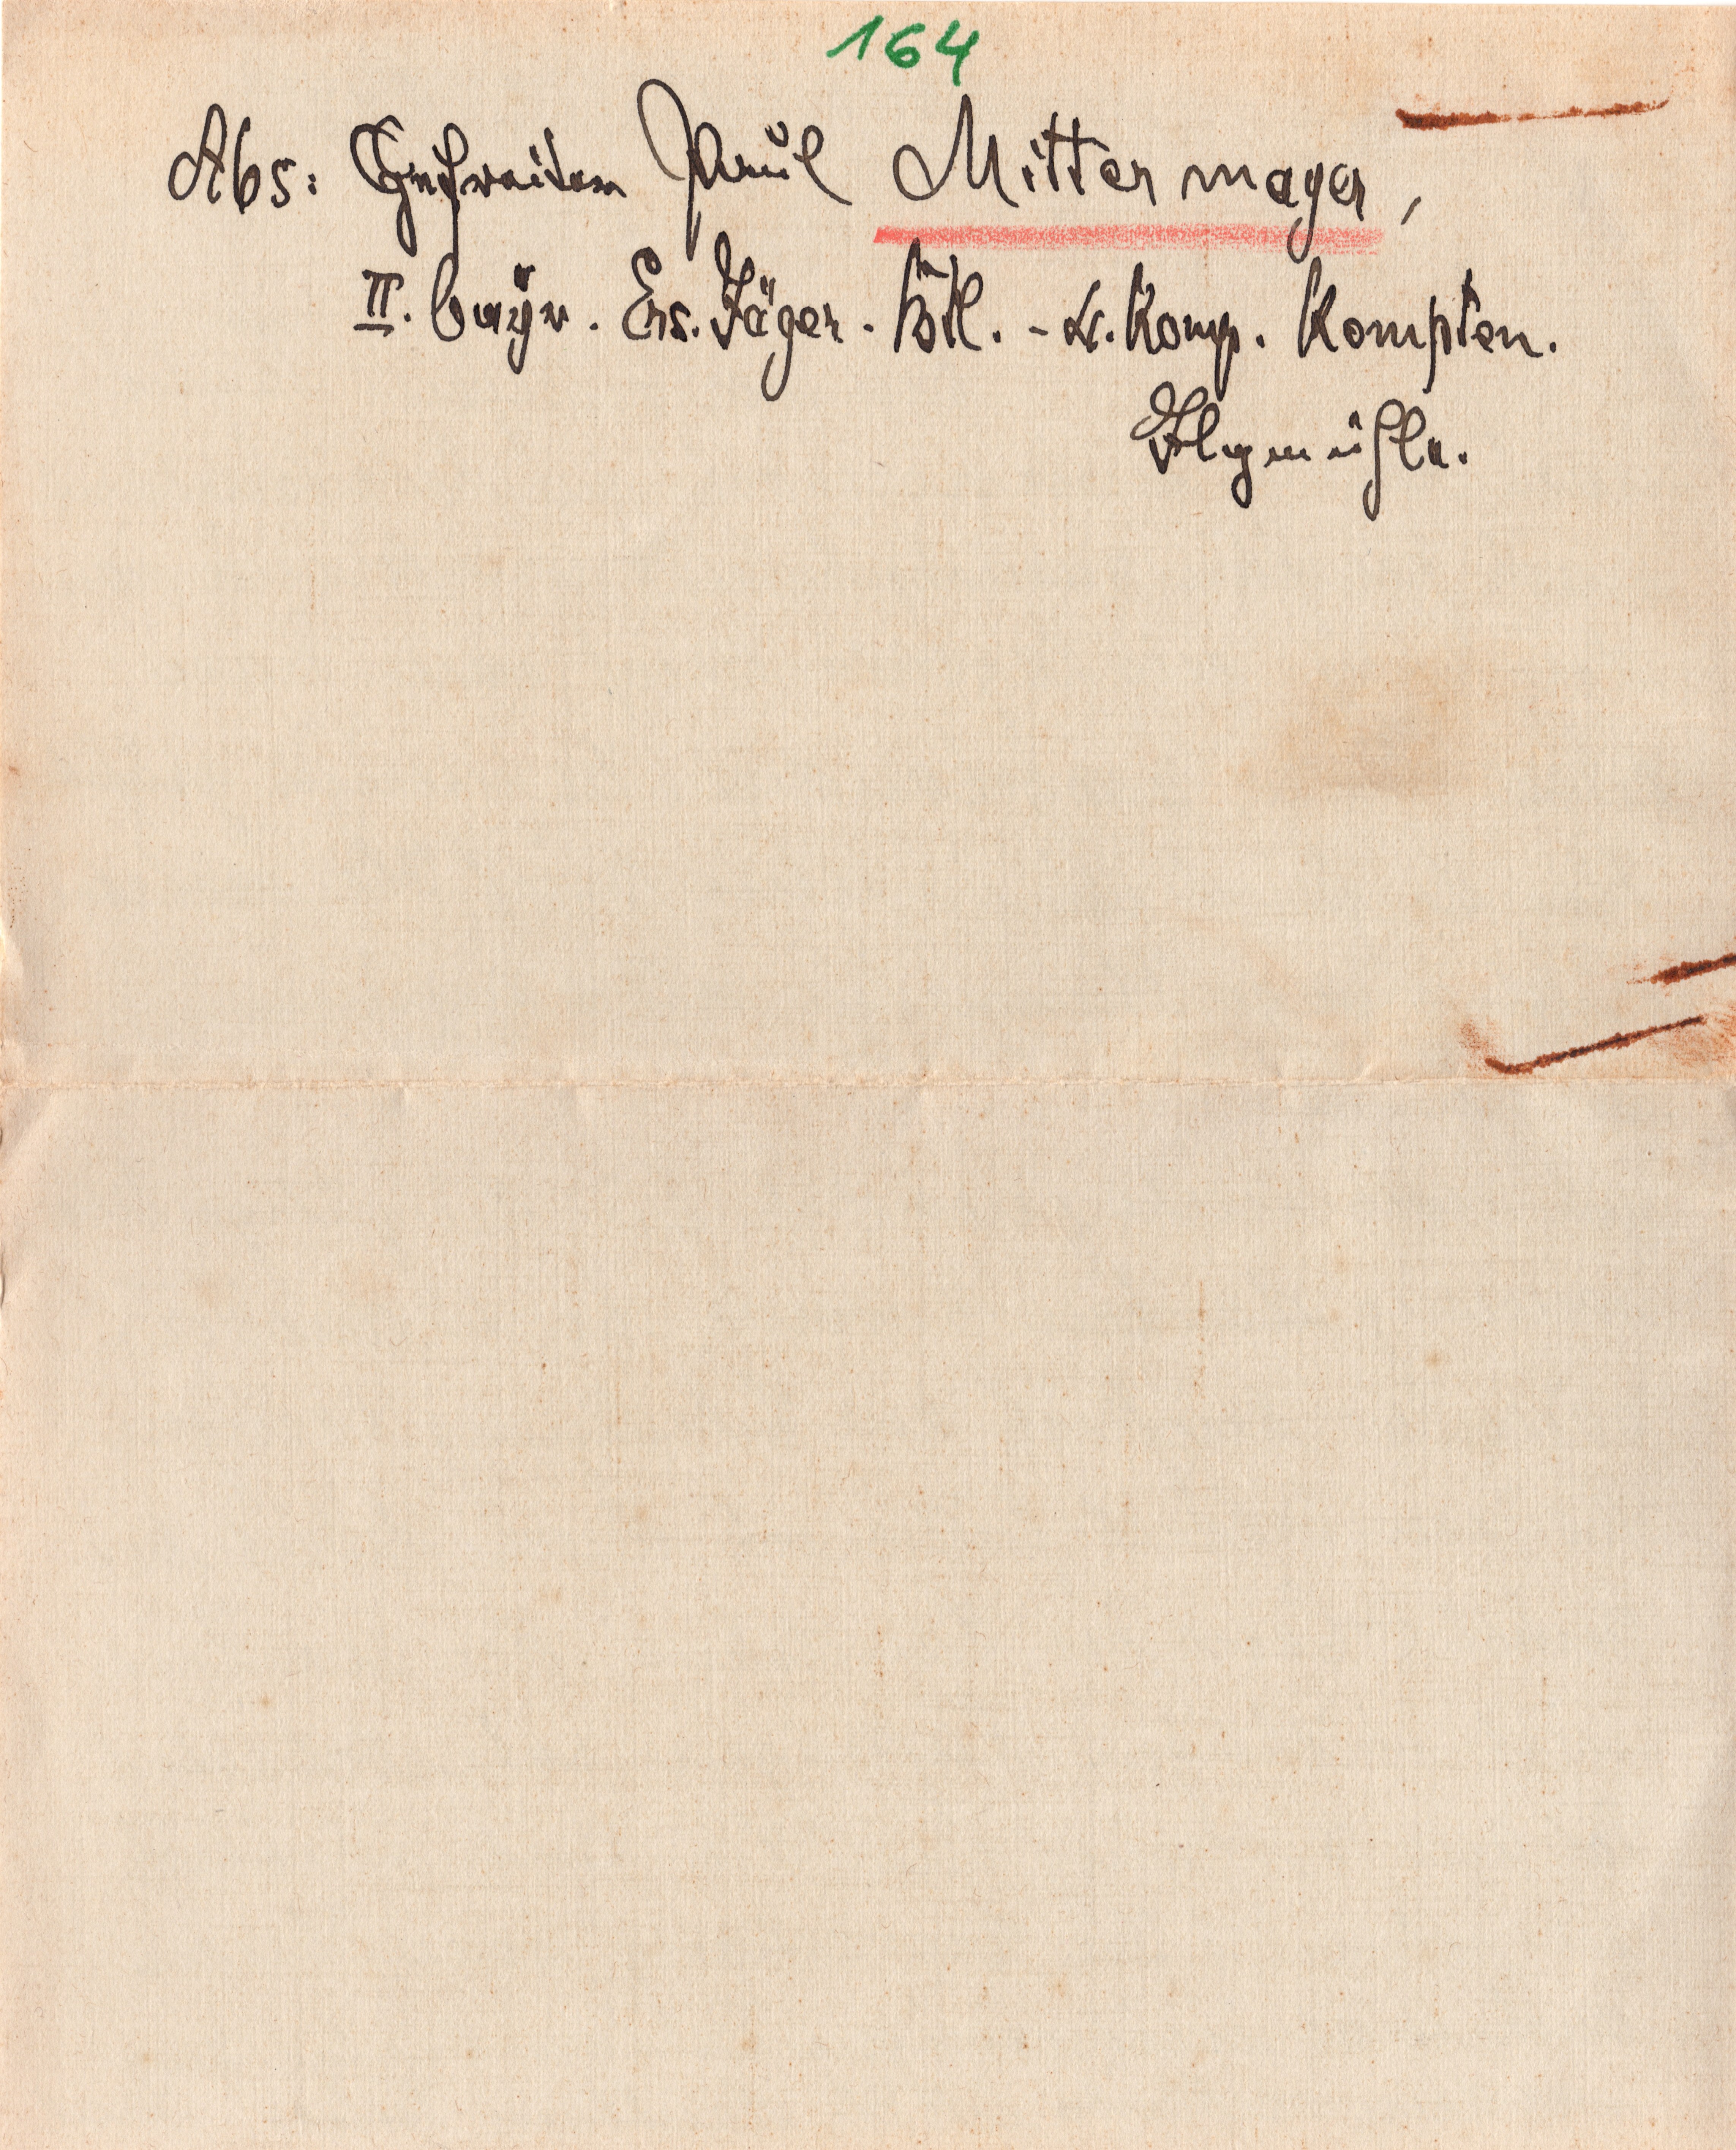 164
Abs: Gefreiter Paul Mittermayer,
II. bayr. Ers. Jäger-Btl. - 4. Komp. Kempten.
Ilgmühle.